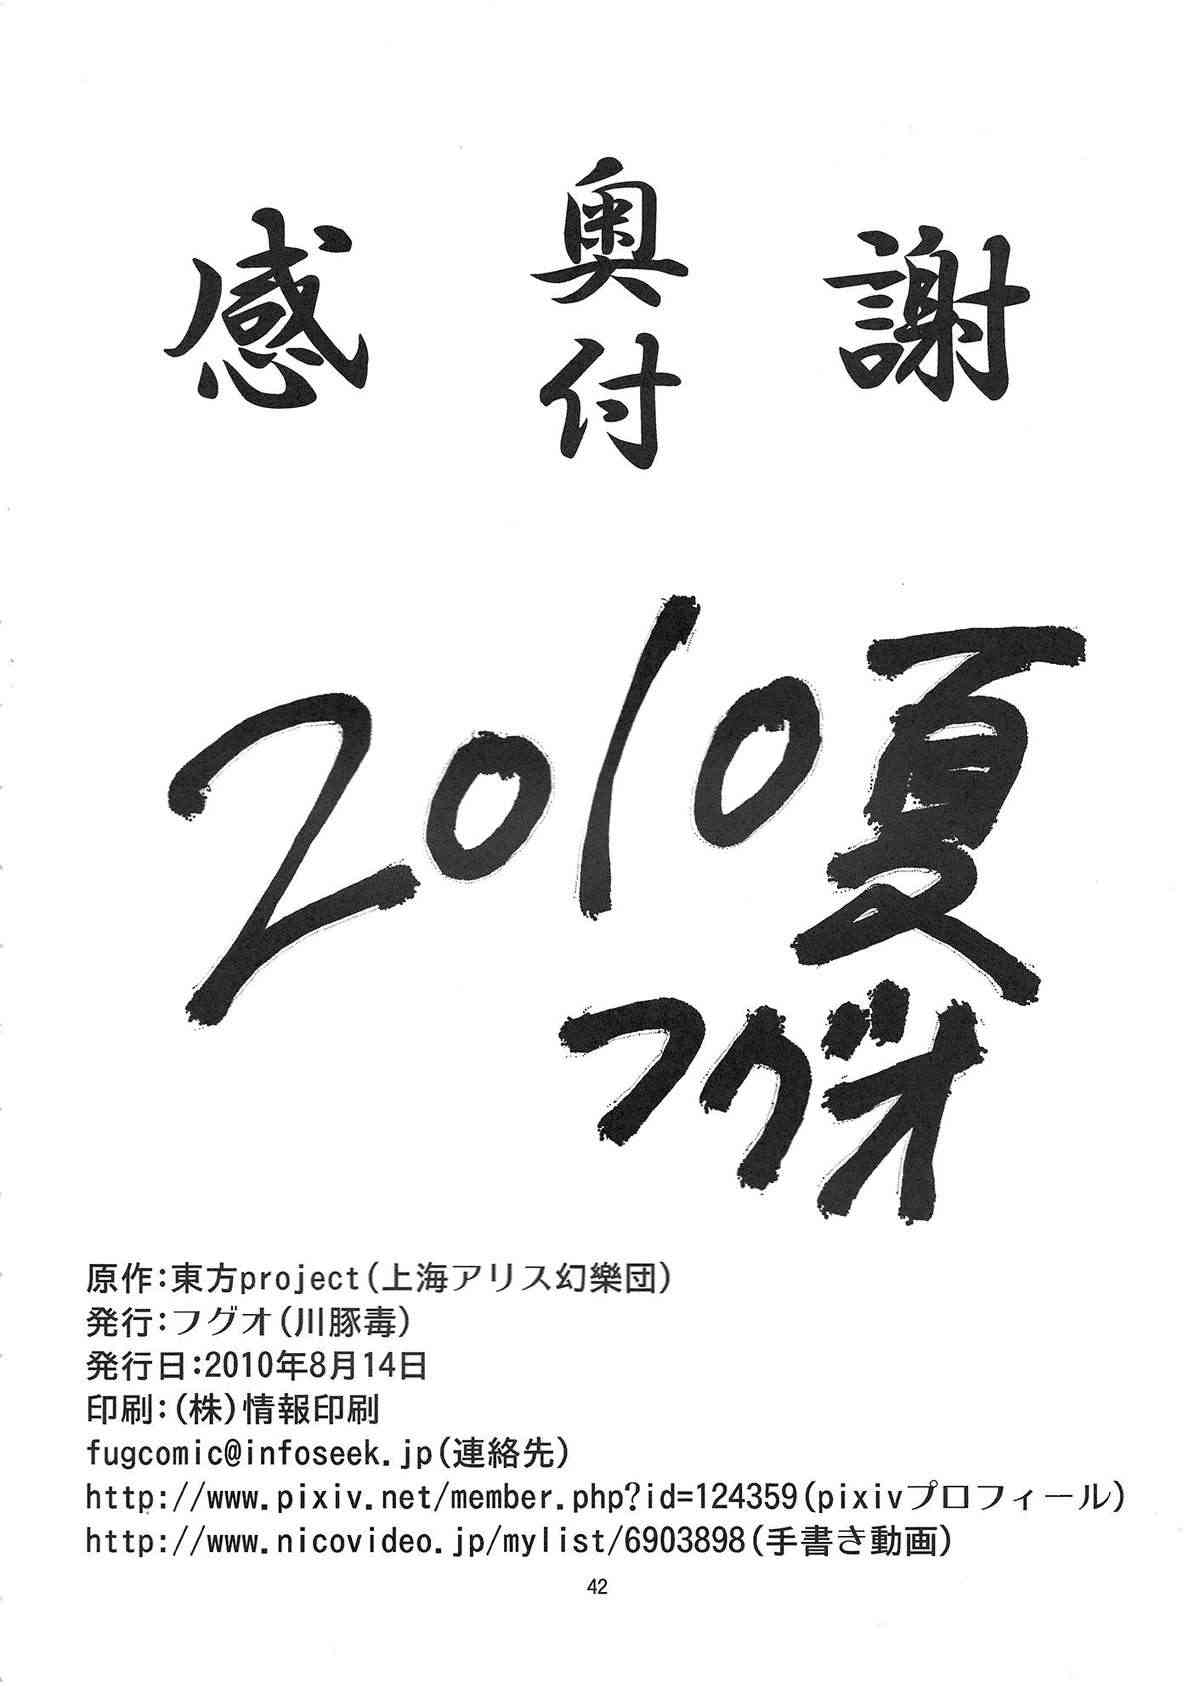 感 奥付 謝
2010夏
フグオ
原作:東方project(上海アリス幻樂団)
発行:フグオ(川豚毒)
発行日:2010年8月14日
印刷:(株)情報印刷
fugcomic@infoseek.jp(連絡先)
http://www.pixiv.net/member.php?id=124359(pixivプロフィール)
http://www.nicovideo.jp/mylist/6903898(手書き動画)
42